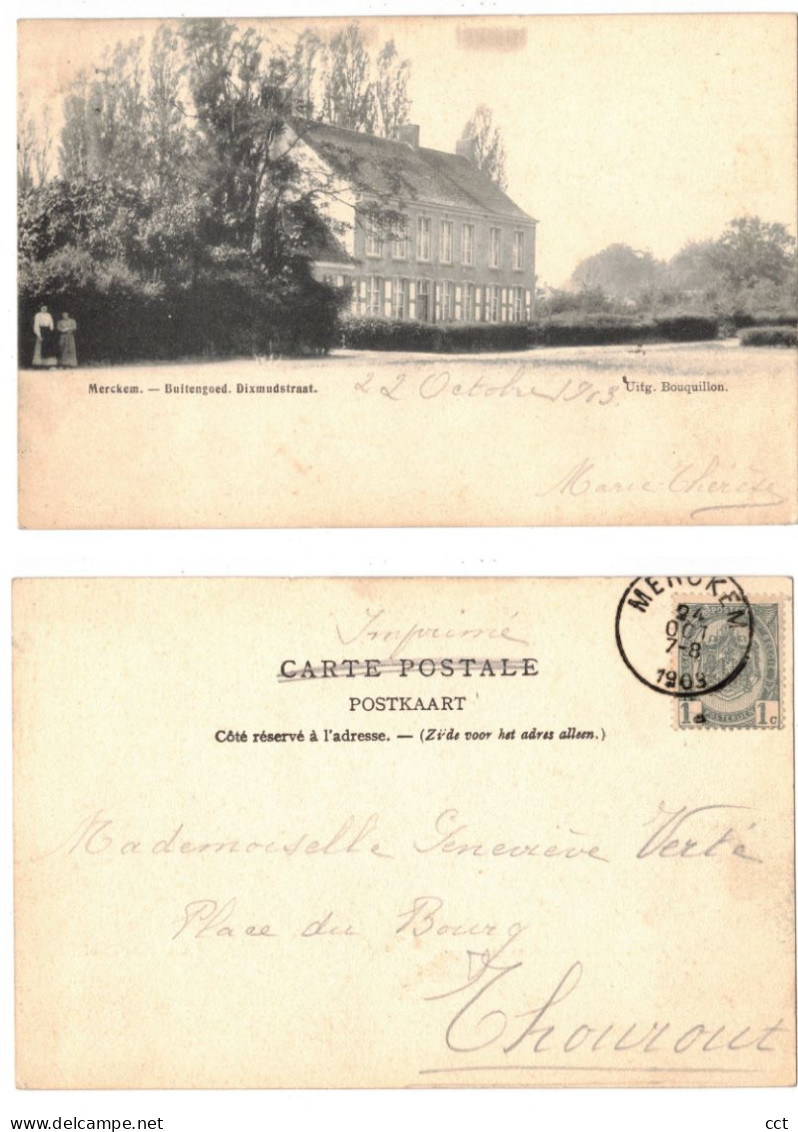 Merckem. — Buitengoed. Dixmudstraat.
22 Octobre 1903.
Uitg. Bouquillon.
Marie-Thérèse
Imprimé
CARTE POSTALE
POSTKAART
Côté réservé à l'adresse. — (Zijde voor het adres alleen.)
MERCKEM
24
OCT
7-8
1903
1c 1c
Mademoiselle Geneviève Verté
Place du Bourg
Thourout
Delcampe.net
cct